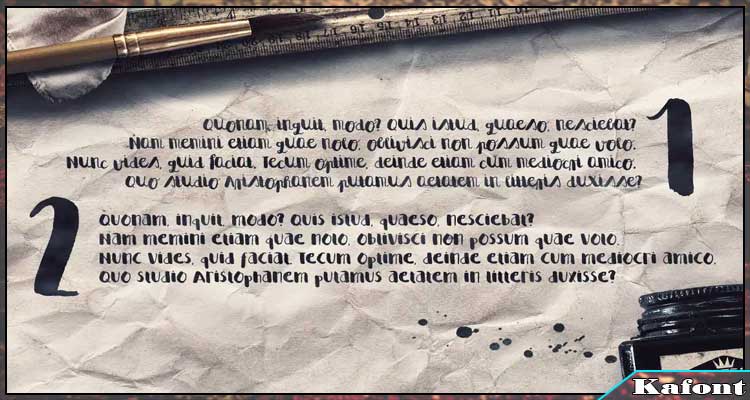 Quonam, inquit, modo? Quis istud, quaeso, nesciebat?
Nam memini etiam quae nolo, oblivisci non possum quae volo.
Nunc vides, quid faciat. Tecum optime, deinde etiam cum mediocri amico.
Quo studio Aristophanem putamus aetatem in litteris duxisse?
1
2
Quonam, inquit, modo? Quis istud, quaeso, nesciebat?
Nam memini etiam quae nolo, oblivisci non possum quae volo.
Nunc vides, quid faciat. Tecum optime, deinde etiam cum mediocri amico.
Quo studio Aristophanem putamus aetatem in litteris duxisse?
Kafont